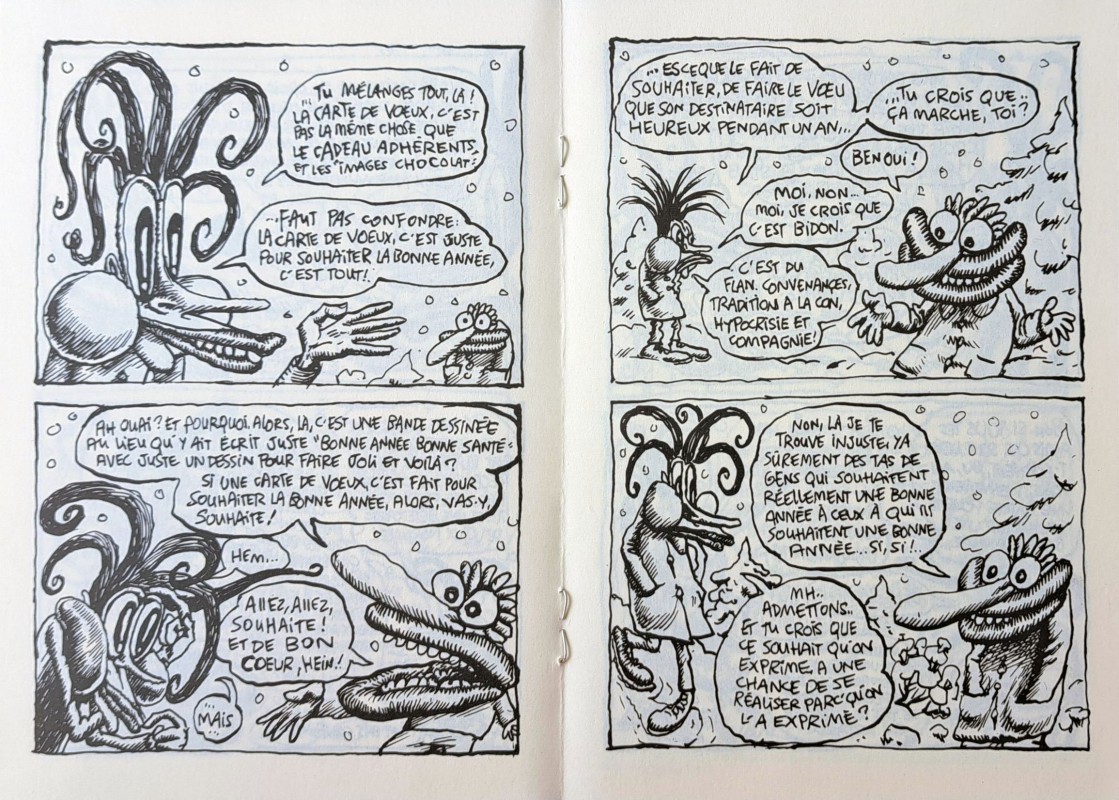 ... TU MÉLANGES TOUT, LÀ !
LA CARTE DE VOEUX, C'EST
PAS LA MÊME CHOSE QUE
LE CADEAU ADHÉRENTS,
ET LES "IMAGES CHOCOLAT"...
...FAUT PAS CONFONDRE :
LA CARTE DE VOEUX, C'EST JUSTE
POUR SOUHAITER LA BONNE ANNÉE,
C'EST TOUT !
AH OUAI ? ET POURQUOI, ALORS, LÀ, C'EST UNE BANDE DESSINÉE
AU LIEU QU'Y AIT ÉCRIT JUSTE "BONNE ANNÉE BONNE SANTÉ"
AVEC JUSTE UN DESSIN POUR FAIRE JOLI ET VOILÀ ?
SI UNE CARTE DE VOEUX, C'EST FAIT POUR
SOUHAITER LA BONNE ANNÉE, ALORS, VAS-Y,
SOUHAITE !
HEM...
ALLEZ, ALLEZ,
SOUHAITE !
ET DE BON
COEUR, HEIN !
MAIS
... ESCEQUE LE FAIT DE
SOUHAITER, DE FAIRE LE VOEU
QUE SON DESTINATAIRE SOIT
HEUREUX PENDANT UN AN...
...TU CROIS QUE..
ÇA MARCHE, TOI ?
BEN OUI !
MOI, NON...
MOI, JE CROIS QUE
C'EST BIDON.
C'EST DU
FLAN. CONVENANCES,
TRADITION A LA CON,
HYPOCRISIE ET
COMPAGNIE !
NON, LÀ JE TE
TROUVE INJUSTE, YA
SÛREMENT DES TAS DE
GENS QUI SOUHAITENT
RÉELLEMENT UNE BONNE
ANNÉE À CEUX À QUI ILS
SOUHAITENT UNE BONNE
ANNÉE... SI, SI !..
MH..
ADMETTONS..
ET TU CROIS QUE
CE SOUHAIT QU'ON
EXPRIME, A UNE
CHANCE DE SE
RÉALISER PARC'QU'ON
L'A EXPRIMÉ ?